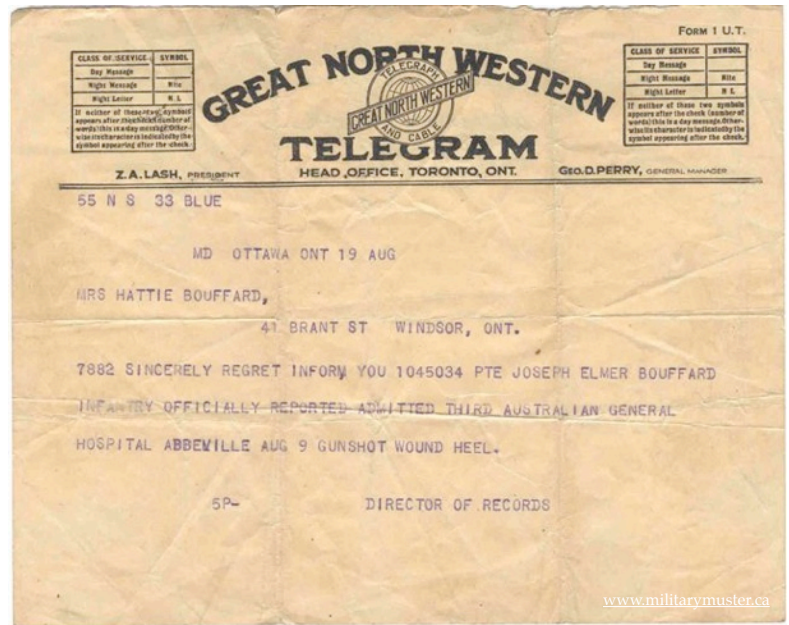 FORM 1 U.T.
CLASS OF SERVICE SYMBOL
Day Message
Night Message Nite
Night Letter N L
If neither of these two symbols
appears after the check (number of
words) this is a day message. Other-
wise its character is indicated by the
symbol appearing after the check.
GREAT NORTH WESTERN
TELEGRAPH
GREAT NORTH WESTERN
AND CABLE
TELEGRAM
CLASS OF SERVICE SYMBOL
Day Message
Night Message Nite
Night Letter N L
If neither of these two symbols
appears after the check (number of
words) this is a day message. Other-
wise its character is indicated by the
symbol appearing after the check.
Z.A. LASH, PRESIDENT HEAD OFFICE, TORONTO, ONT. GEO. D. PERRY, GENERAL MANAGER
55 N S 33 BLUE
MD OTTAWA ONT 19 AUG
MRS HATTIE BOUFFARD,
41 BRANT ST WINDSOR, ONT.
7882 SINCERELY REGRET INFORM YOU 1045034 PTE JOSEPH ELMER BOUFFARD
INFANTRY OFFICIALLY REPORTED ADMITTED THIRD AUSTRALIAN GENERAL
HOSPITAL ABBEVILLE AUG 9 GUNSHOT WOUND HEEL.
5P- DIRECTOR OF RECORDS
www.militarymuster.ca